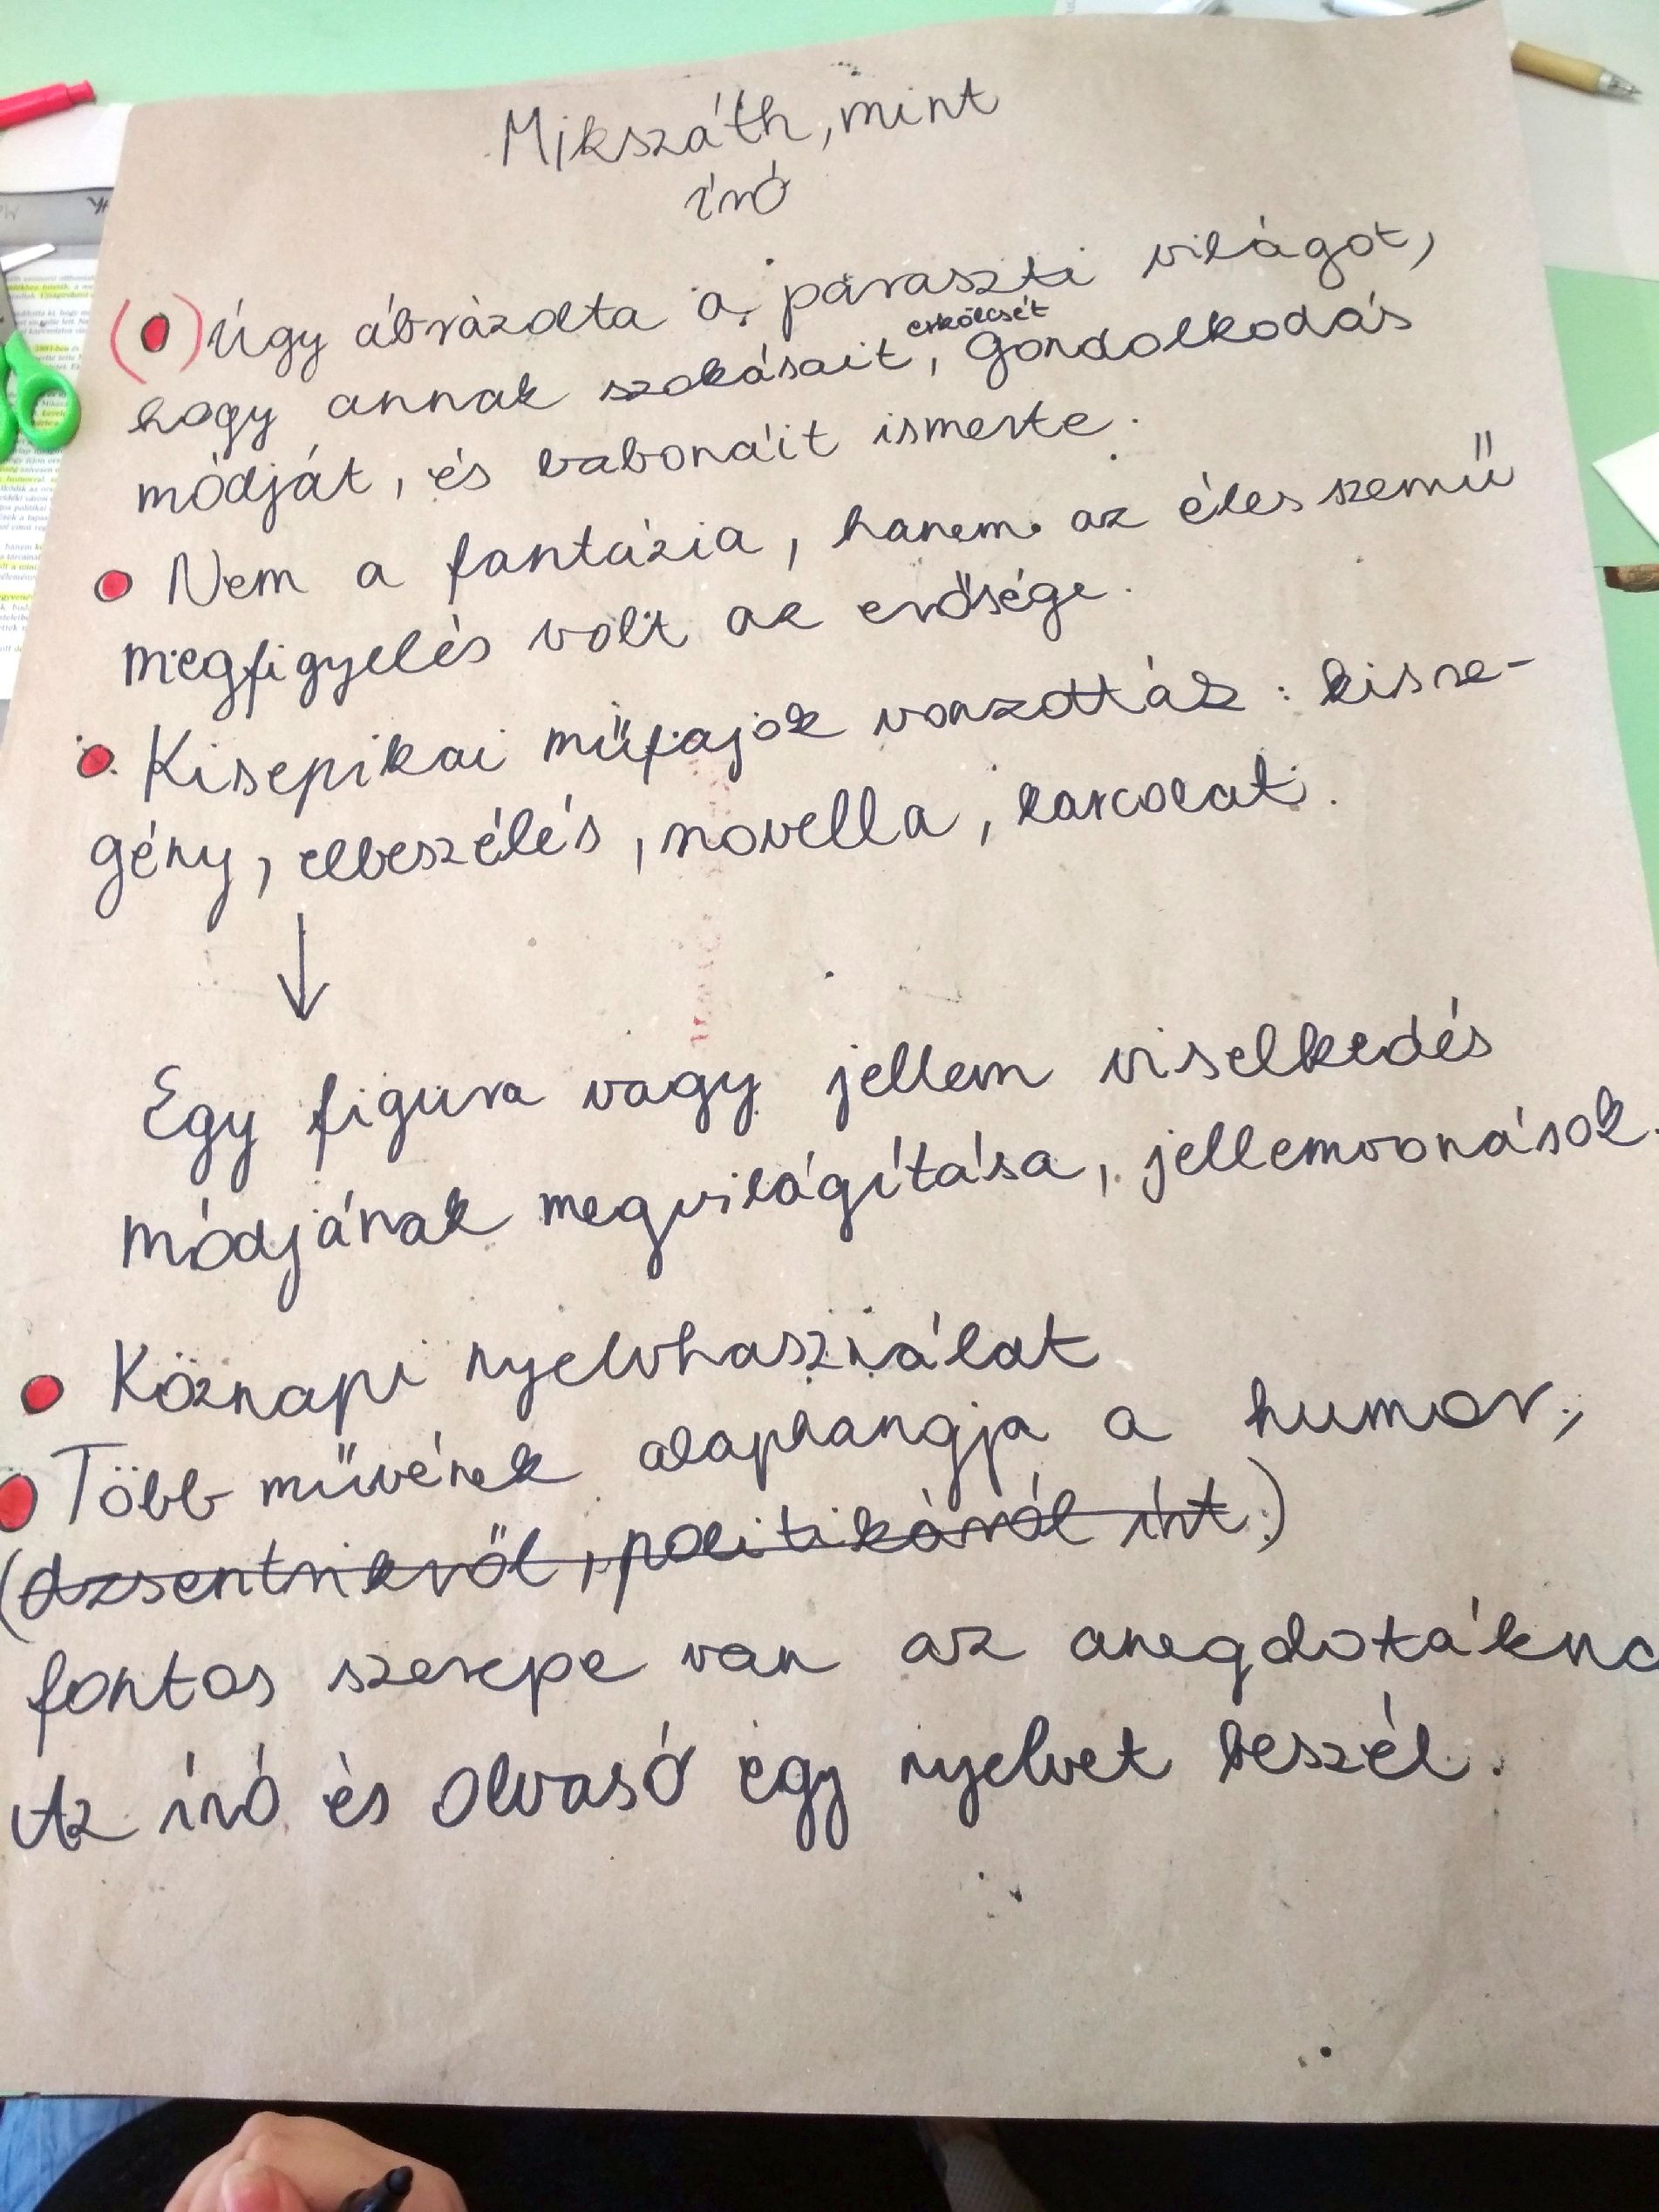 Mikszáth, mint
író
(•) Úgy ábrázolta a paraszti világot,
erkölcsét
hogy annak szokásait, Gondolkodás
módját, és babonáit ismerte.
• Nem a fantázia, hanem az éles szemű
megfigyelés volt az erőssége.
• Kisepikai műfajok vonzották: kisre-
gény, elbeszélés, novella, karcolat.
↓
Egy figura vagy jellem viselkedés
módjának megvilágítása, jellemvonások.
• Köznapi nyelvhasználat
• Több művének alaphangja a humor,
(dzsentrikről, politikáról írt.)
fontos szerepe van az anegdotákna
Az író és olvasó egy nyelvet beszél.